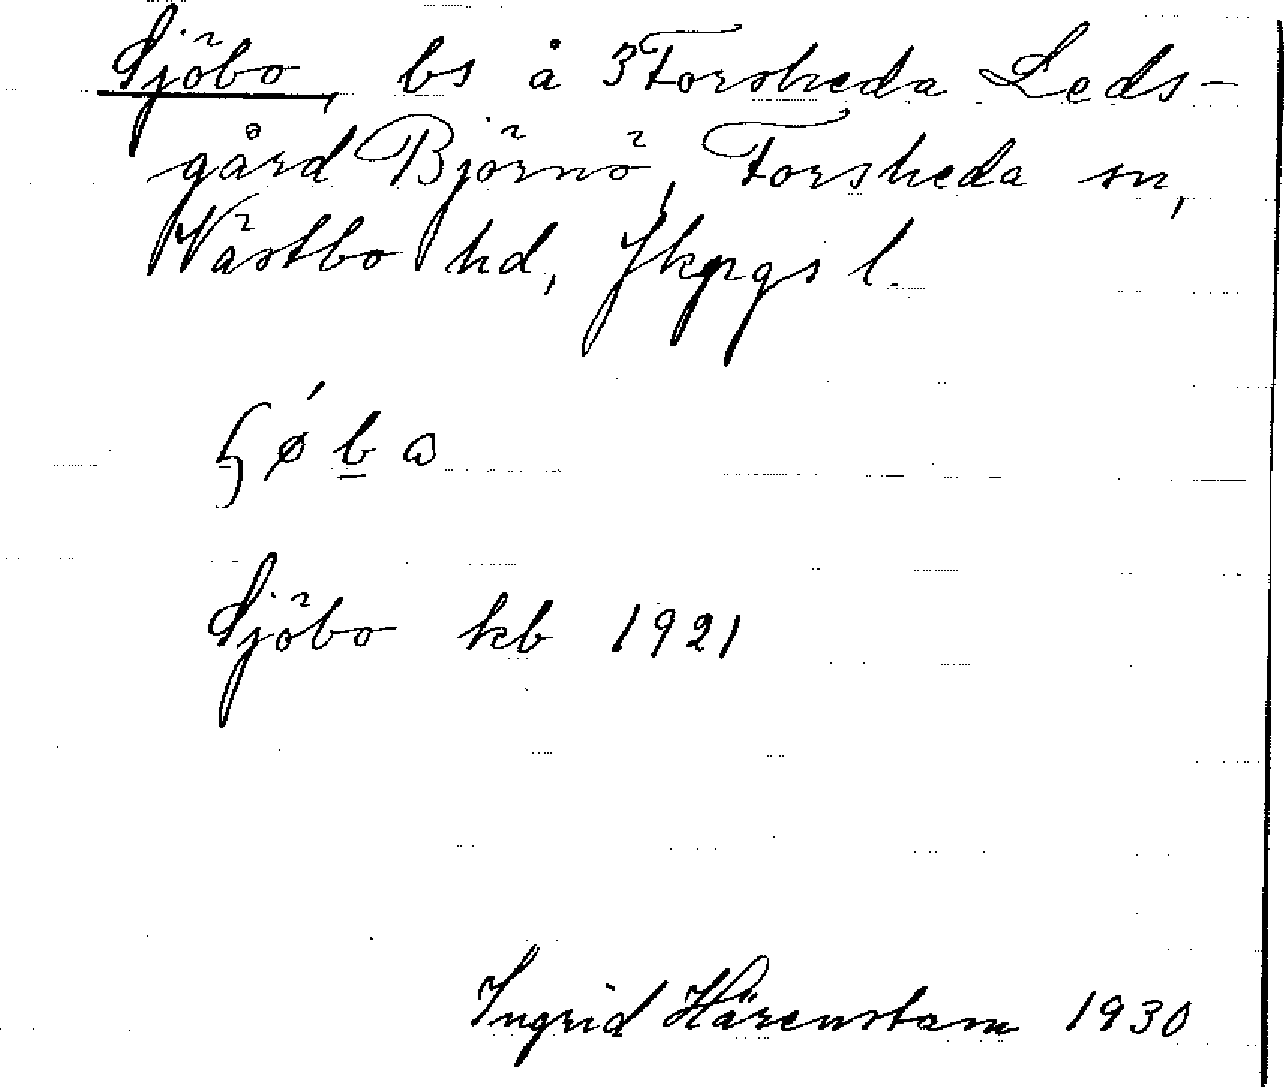 Sjöbo, bs å 3 Forsheda Leds-
gård Björnö, Forsheda sn,
Västbo hd, Jkpgs l.
ɧǿb̲ɷ
Sjöbo kb 1921
Ingrid Härenstam 1930